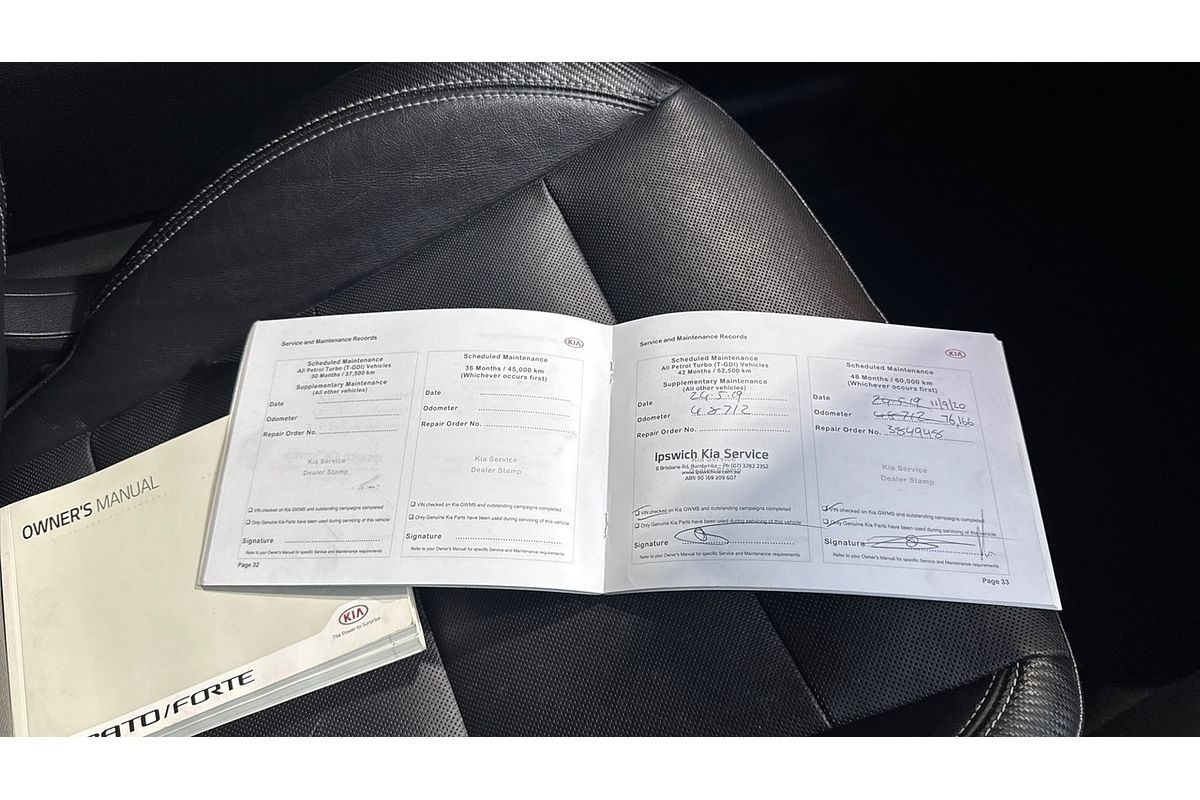 Service and Maintenance Records
KIA
Scheduled Maintenance
All Petrol Turbo (T-GDI) Vehicles
30 Months / 37,500 km
Supplementary Maintenance
(All other vehicles)
Date
Odometer
Repair Order No.
Kia Service
Dealer Stamp
❑ VIN checked on Kia GWMS and outstanding campaigns completed
❑ Only Genuine Kia Parts have been used during servicing of this vehicle
Signature
Refer to your Owner's Manual for specific Service and Maintenance requirements
Page 32
Scheduled Maintenance
36 Months / 45,000 km
(Whichever occurs first)
Date
Odometer
Repair Order No.
Kia Service
Dealer Stamp
❑ VIN checked on Kia GWMS and outstanding campaigns completed
❑ Only Genuine Kia Parts have been used during servicing of this vehicle
Signature
Refer to your Owner's Manual for specific Service and Maintenance requirements
Service and Maintenance Records
KIA
Scheduled Maintenance
All Petrol Turbo (T-GDI) Vehicles
42 Months / 52,500 km
Supplementary Maintenance
(All other vehicles)
Date 24.5.19
Odometer 48712
Repair Order No.
Ipswich Kia Service
Kia Service
6 Brisbane Rd, Bundamba - Ph (07) 3282 2352
Dealer Stamp
www.ipswichkia.com.au
ABN 90 169 209 607
❑ VIN checked on Kia GWMS and outstanding campaigns completed
❑ Only Genuine Kia Parts have been used during servicing of this vehicle
Signature
Refer to your Owner's Manual for specific Service and Maintenance requirements
Scheduled Maintenance
48 Months / 60,000 km
(Whichever occurs first)
Date 24.5.19 11/9/20
Odometer 48712 76,166
Repair Order No. 384948
Kia Service
Dealer Stamp
❑ VIN checked on Kia GWMS and outstanding campaigns completed
❑ Only Genuine Kia Parts have been used during servicing of this vehicle
Signature
Refer to your Owner's Manual for specific Service and Maintenance requirements
Page 33
OWNER'S MANUAL
KIA
The Power to Surprise
RATO/FORTE